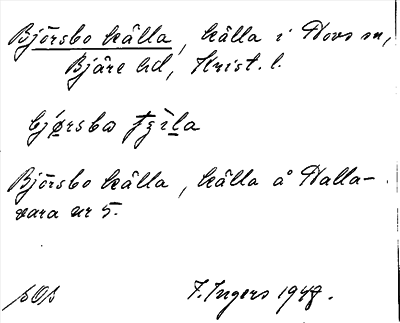 Björsbo källa, källa i Hovs sn,
Bjäre hd, Krist. l.
Björsbo källa, källa å Halla-
vara nr 5.
I. Ingers 1948.